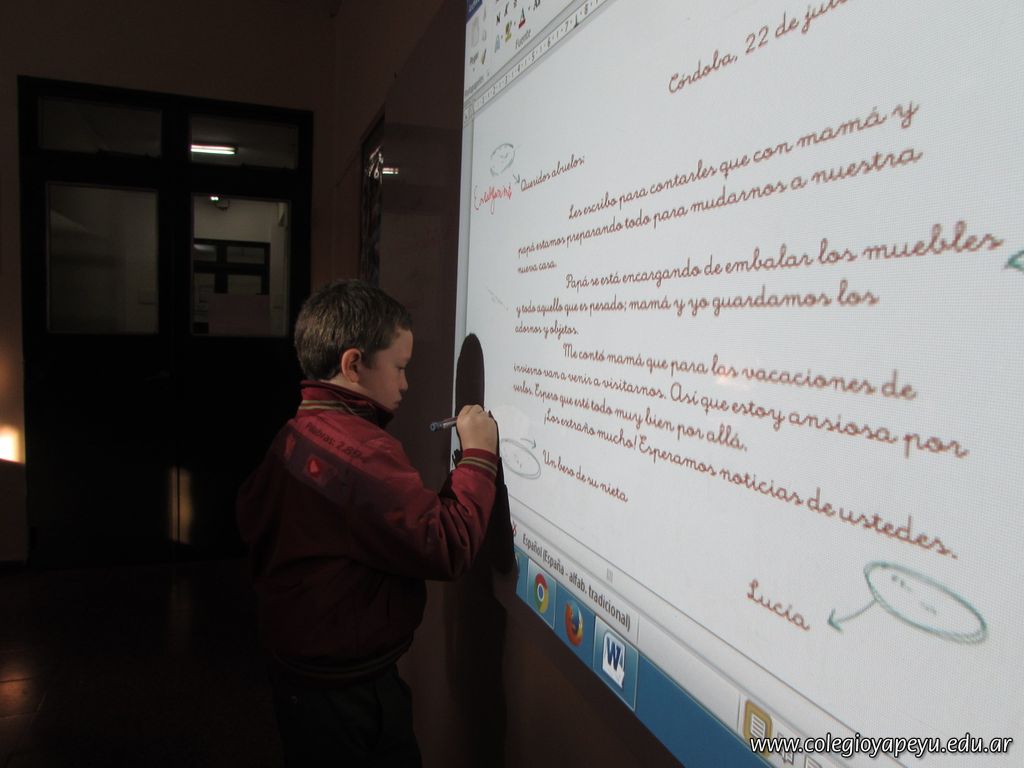 Fuente
Córdoba, 22 de
Queridos abuelos:
Les escribo para contarles que con mamá y
papá estamos preparando todo para mudarnos a nuestra
nueva casa.
Papá se está encargando de embalar los muebles
y todo aquello que es pesado; mamá y yo guardamos los
adornos y objetos.
Me contó mamá que para las vacaciones de
invierno van a venir a visitarnos. Así que estoy ansiosa por
verlos. Espero que esté todo muy bien por allá.
¡Los extraño mucho! Esperamos noticias de ustedes.
Un beso de su nieta
Lucía
Español (España - alfab. tradicional)
W
www.colegioyapeyu.edu.ar